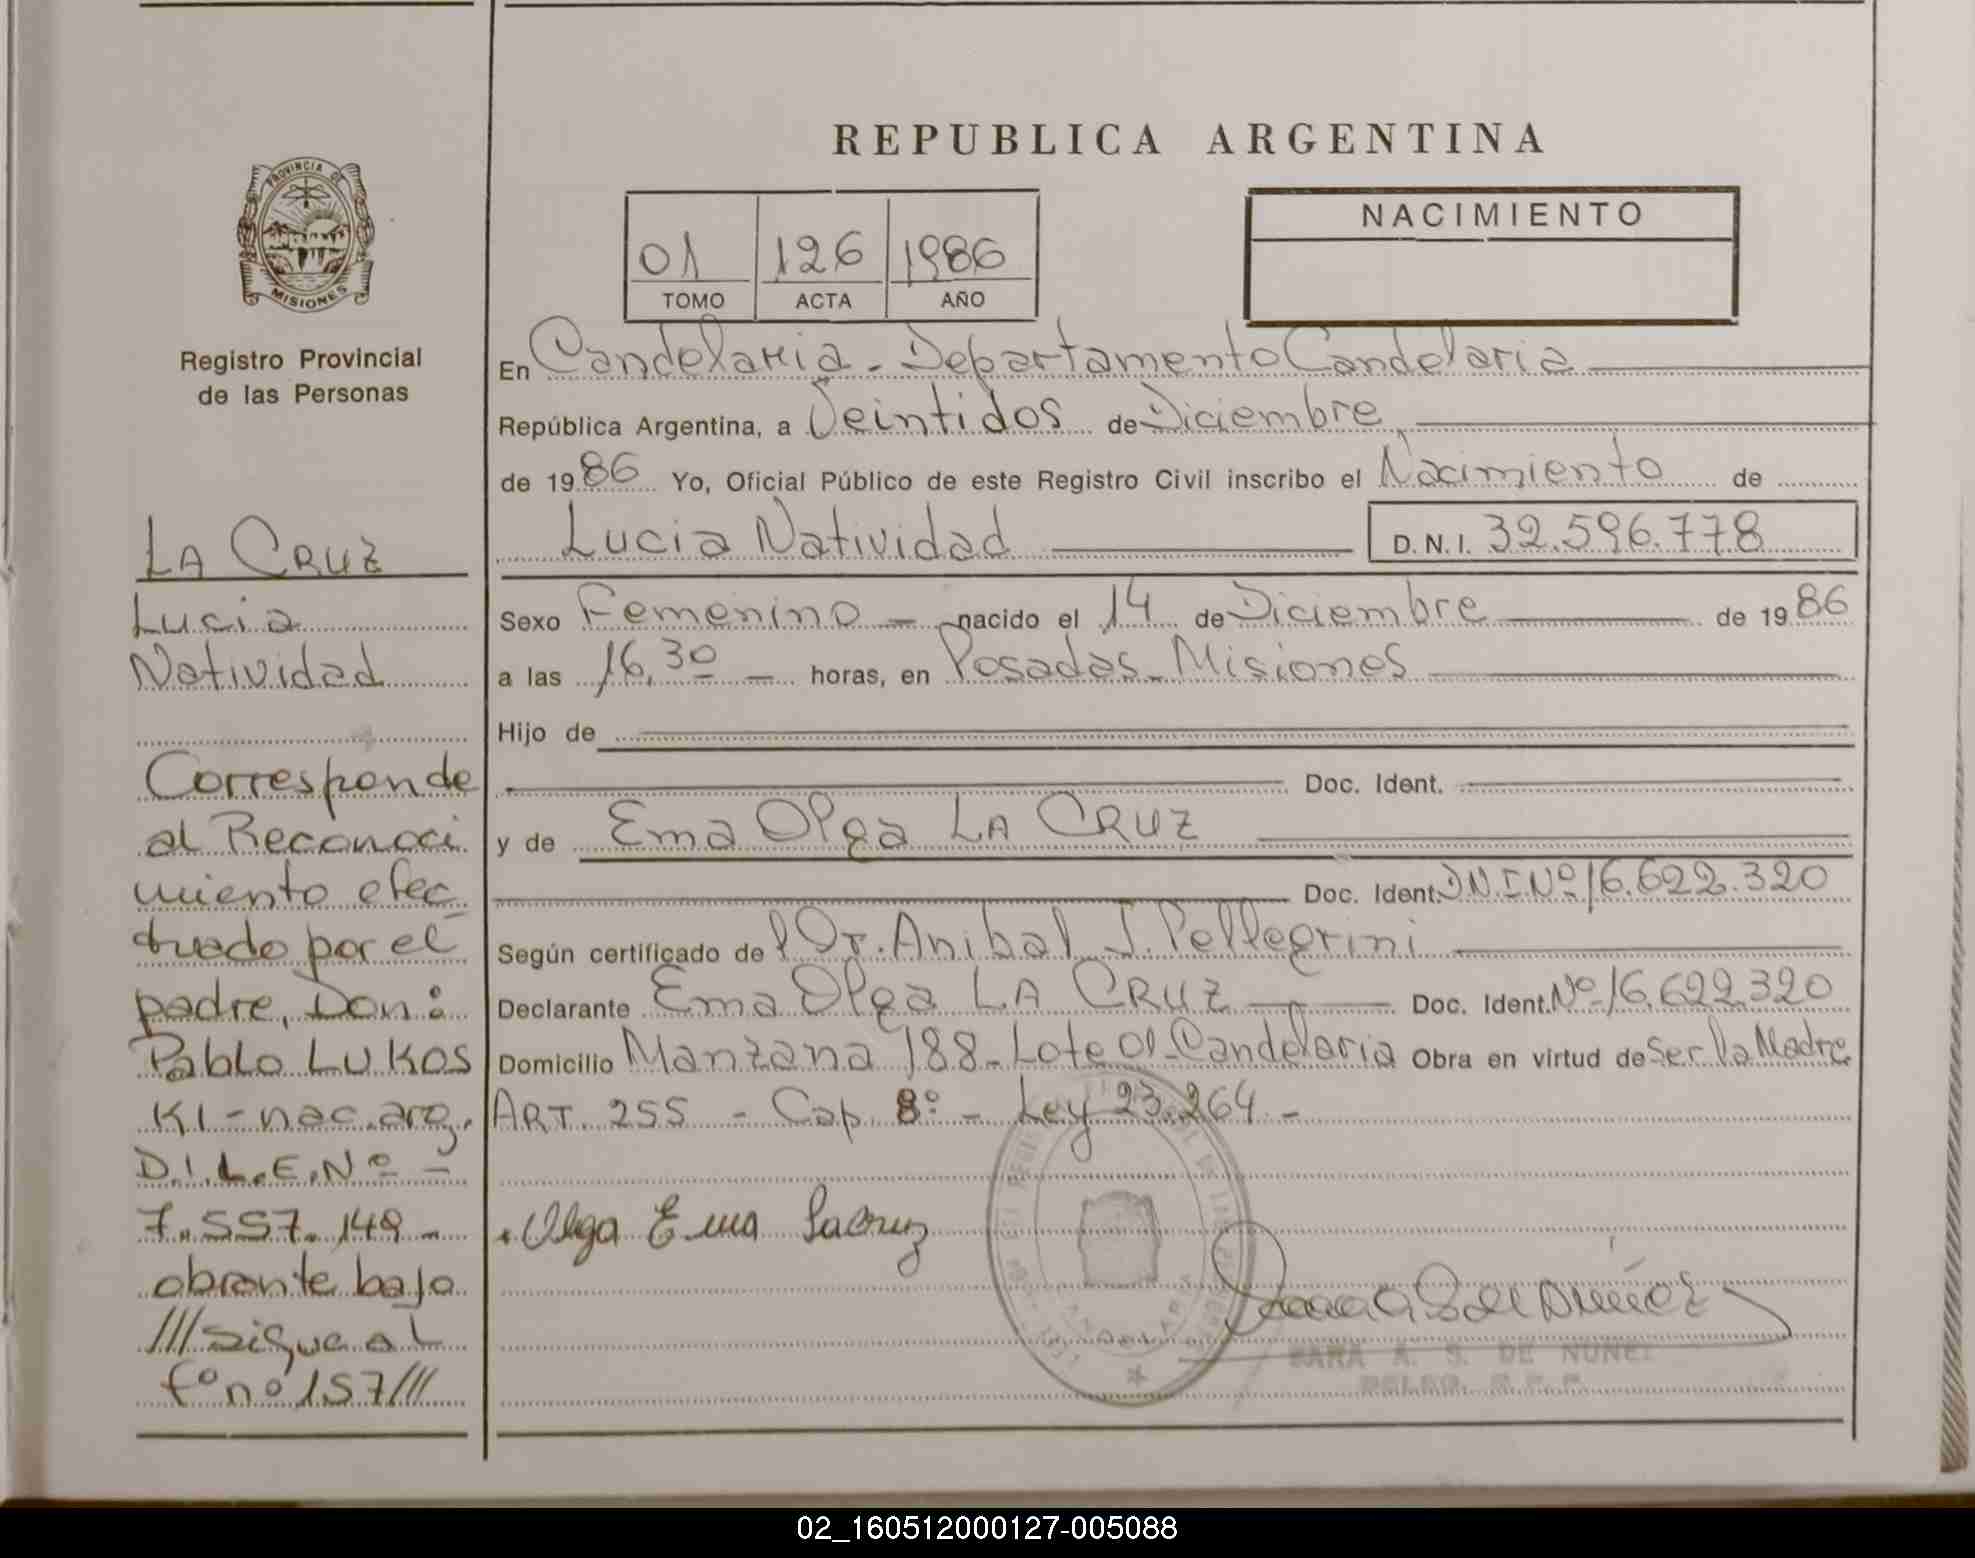 REPUBLICA ARGENTINA
PROVINCIA DE
MISIONES
Registro Provincial
de las Personas
01 126 1986
TOMO ACTA AÑO
NACIMIENTO
En Candelaria - Departamento Candelaria
República Argentina, a Veintidos de Diciembre
de 1986 Yo, Oficial Público de este Registro Civil inscribo el Nacimiento de
Lucia Natividad D.N.I. 32.596.778
Sexo Femenino - nacido el 14 de Diciembre de 1986
a las 16,30 - horas, en Posadas - Misiones
Hijo de
Doc. Ident.
y de Ema Olga LA CRUZ
Doc. Ident. D.N.I.Nº 16.622.320
Según certificado de Dr. Anibal J. Pellegrini
Declarante Ema Olga LA CRUZ Doc. Ident. Nº 16.622.320
Domicilio Manzana 188 - Lote 01 - Candelaria Obra en virtud de Ser la Madre
ART. 255 - Cap. 8º - Ley 23.264 -
Olga Ema Lacruz
SARA A. S. DE NUÑEZ
LA CRUZ
Lucia
Natividad
Corresponde
al Reconoci
miento efec
tuado por el
padre, Don:
Pablo LUKOS
KI - nac. arg.
D.I. L.E. Nº -
7.557.149 -
obrante bajo
///sigue al
fº nº 157///
02_160512000127-005088